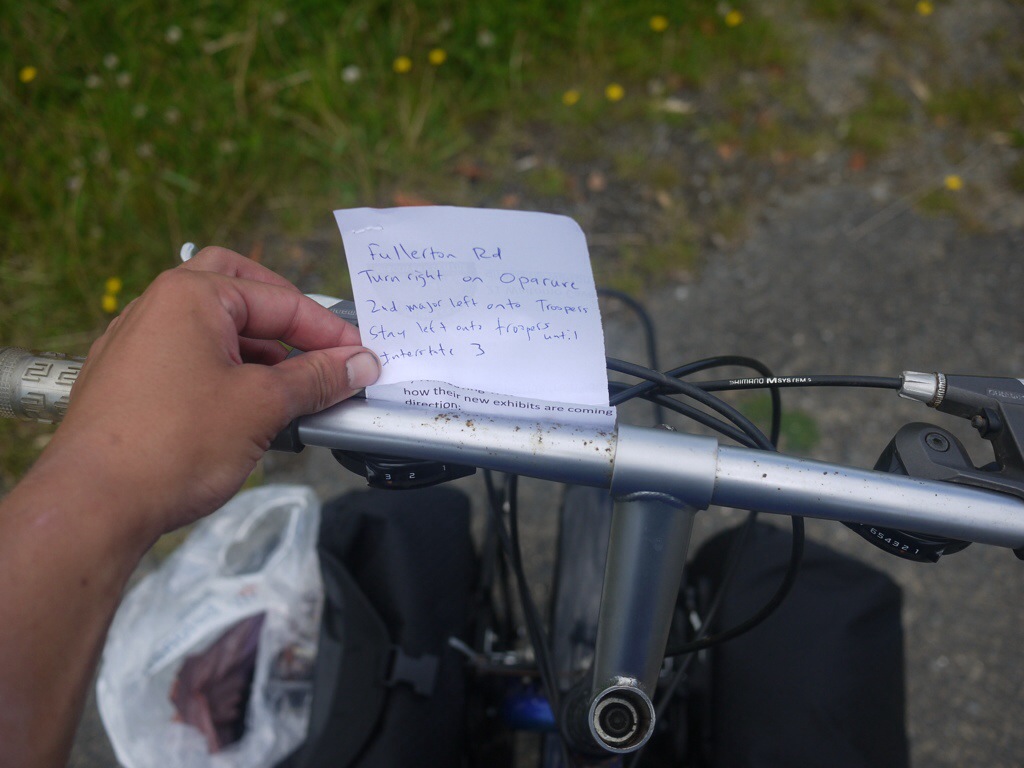 Fullerton Rd
Turn right on Oparure
2nd major left onto Troopers
Stay left onto troopers until
Interstate 3
how their new exhibits are coming
direction:
SHIMANO M SYSTEM
3 2
6 5 4 3 2 1